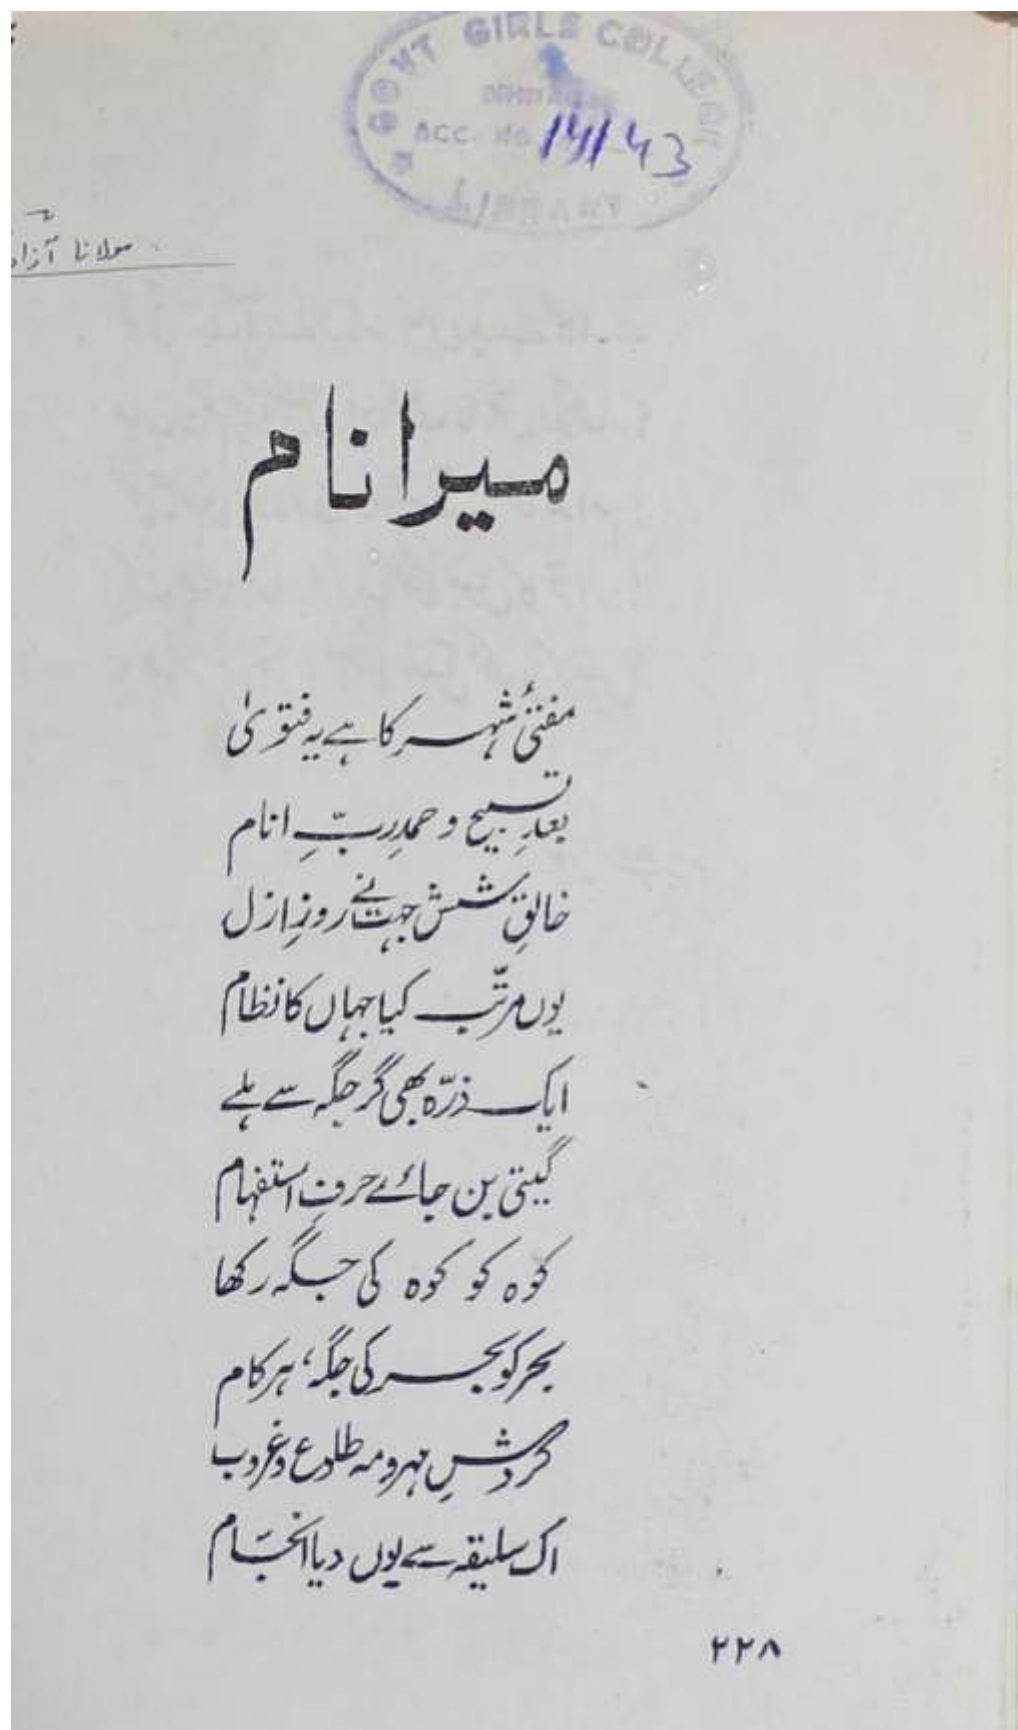 GOVT GIRLS COLLEGE
ACC. No 14143
مولانا آزاد
میرا نام
مفتیٔ شہر کا ہے یہ فتویٰ
بعدِ تسبیح و حمدِ ربِّ انام
خالقِ شش جہت نے روزِ ازل
یوں مرتّب کیا جہاں کا نظام
ایک ذرّہ بھی گر جگہ سے ہلے
گیتی بن جائے حرفِ استفہام
کوہ کو کوہ کی جگہ رکھا
بحر کو بحر کی جگہ، ہر کام
گردشِ مہر و مہ طلوع و غروب
اک سلیقہ سے یوں دیا انجام
۲۲۸